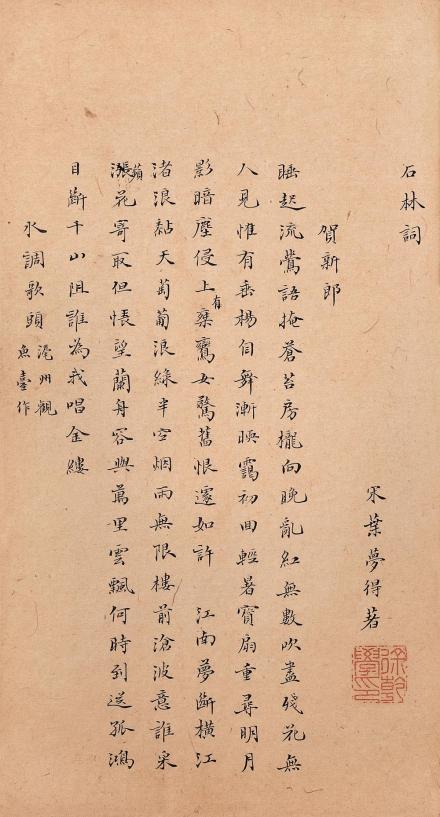 石林詞
宋葉夢得著
徐乾學印
賀新郎
睡起流鶯語掩蒼苔房櫳向晚亂紅無數吹盡殘花無
人見惟有垂楊自舞漸暖靄初回輕暑寶扇重尋明月
影暗塵侵上有乘鸞女驚舊恨遽如許　江南夢斷橫江
渚浪黏天萄葡浪綠半空烟雨無限樓前滄波意誰采
蘋花寄取但悵望蘭舟容與萬里雲飄何時到送孤鴻
目斷千山阻誰為我唱金縷
水調歌頭 濠州觀
魚臺作